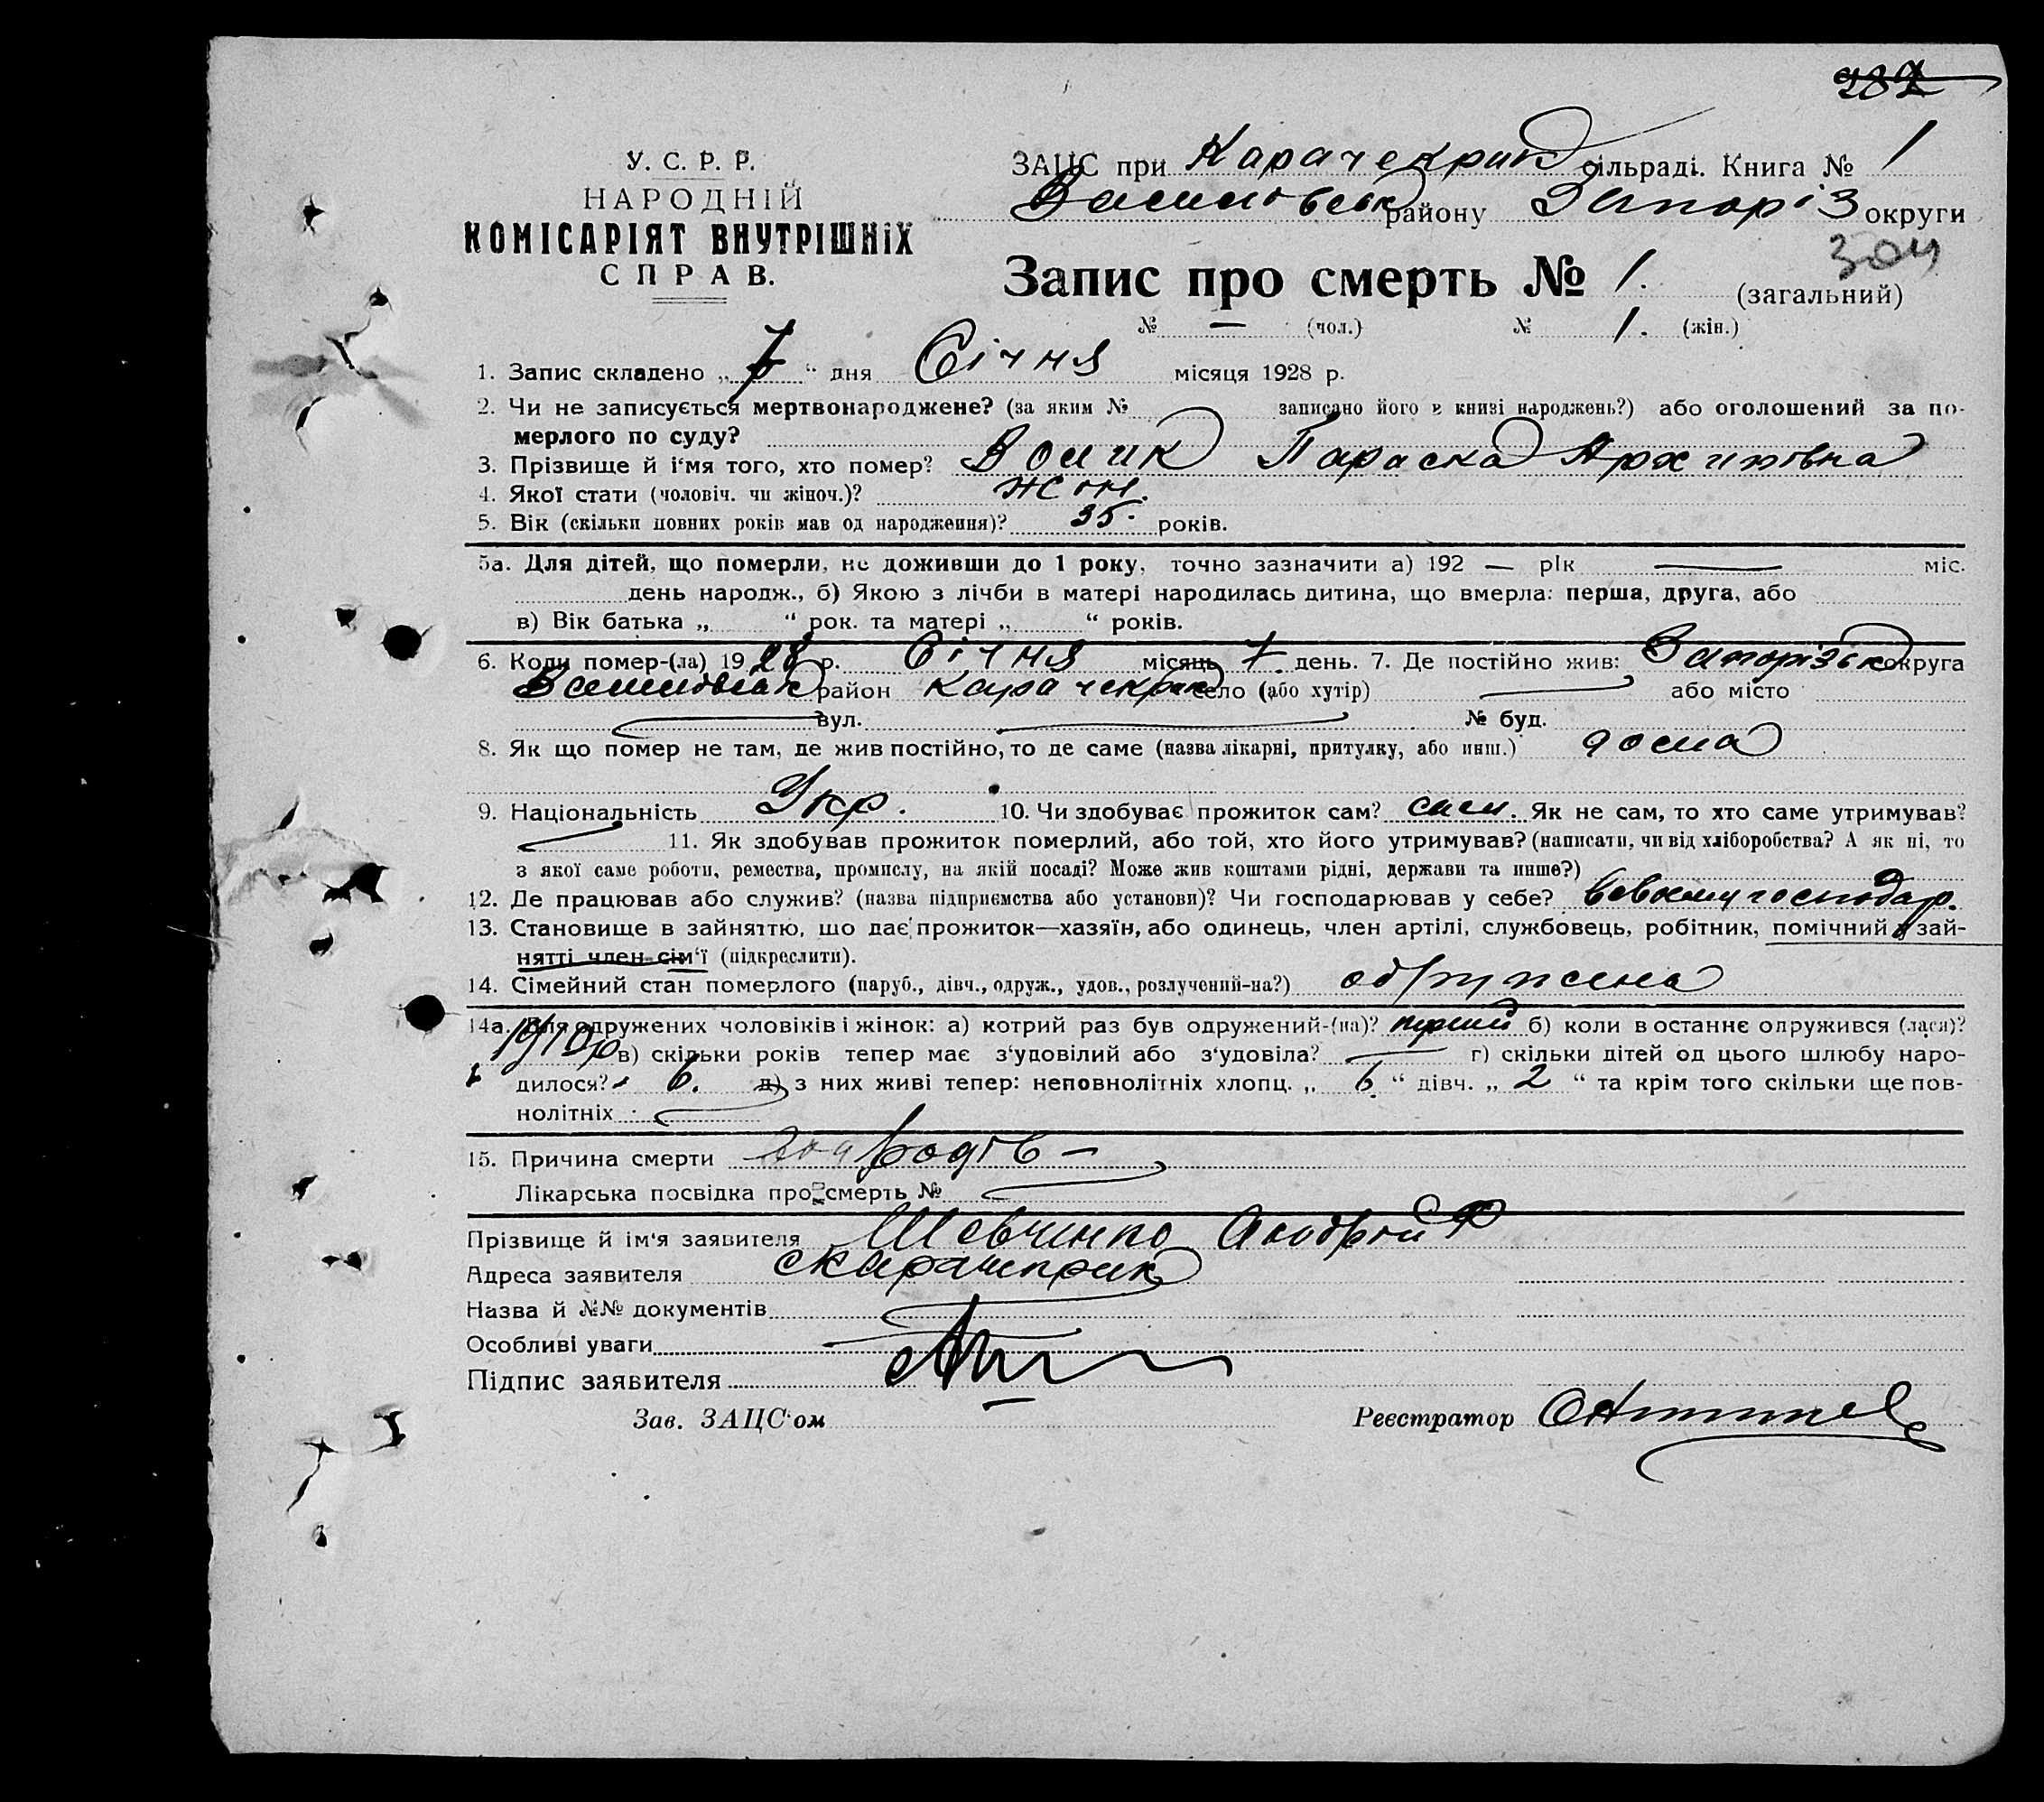 382
У. С. Р. Р.
НАРОДНІЙ
КОМІСАРІЯТ ВНУТРІШНІХ
СПРАВ.
ЗАЦС при Карачекрик сільраді. Книга № 1
Василівськ району Запоріз округи
304
Запис про смерть № 1. (загальний)
№ — (чол.) № 1. (жін.)
1. Запис складено „ 7 “ дня Січня місяця 1928 р.
2. Чи не записується мертвонароджене? (за яким № записано його в книзі народжень?) або оголошений за по-
мерлого по суду?
3. Прізвище й і‘мя того, хто помер? Волик Параска Архипівна
4. Якої стати (чоловіч. чи жіноч.)? жін.
5. Вік (скільки повних років мав од народження)? 35. років.
5а. Для дітей, що померли, не доживши до 1 року, точно зазначити а) 192 — рік — міс.
день народж., б) Якою з лічби в матері народилась дитина, що вмерла: перша, друга, або
в) Вік батька „ “ рок. та матері „ “ років.
6. Коли помер-(ла) 19 28 р. Січня місяць 7 день. 7. Де постійно жив: Запорізьк округа
Василівськ район Карачекрик село (або хутір) — або місто
— вул. — № буд.
8. Як що помер не там, де жив постійно, то де саме (назва лікарні, притулку, або инш.) дома
9. Національність Укр. 10. Чи здобуває прожиток сам? сам. Як не сам, то хто саме утримував?
— 11. Як здобував прожиток померлий, або той, хто його утримував? (написати, чи від хліборобства? А як ні, то
з якої саме роботи, ремества, промислу, на якій посаді? Може жив коштами рідні, держави та инше?)
12. Де працював або служив? (назва підприємства або установи)? Чи господарював у себе? всвоему господар.
13. Становище в зайняттю, що дає прожиток—хазяїн, або одинець, член артілі, службовець, робітник, помічний у зай-
нятті член сім‘ї (підкреслити).
14. Сімейний стан померлого (паруб., дівч., одруж., удов., розлучений-на?) одружена
14а. Для одружених чоловіків і жінок: а) котрий раз був одружений-(на)? перший б) коли в останнє одружився (лася)?
1910р в) скільки років тепер має з‘удовілий або з‘удовіла? — г) скільки дітей од цього шлюбу наро-
дилося? 6. д) з них живі тепер: неповнолітніх хлопц. „ “ дівч. „ 2 “ та крім того скільки ще пов-
нолітніх —
15. Причина смерти родів —
Лікарська посвідка про смерть № —
Прізвище й ім‘я заявителя Шевченко Андрій
Адреса заявителя
Назва й №№ документів —
Особливі уваги —
Підпис заявителя
Зав. ЗАЦС‘ом Реєстратор